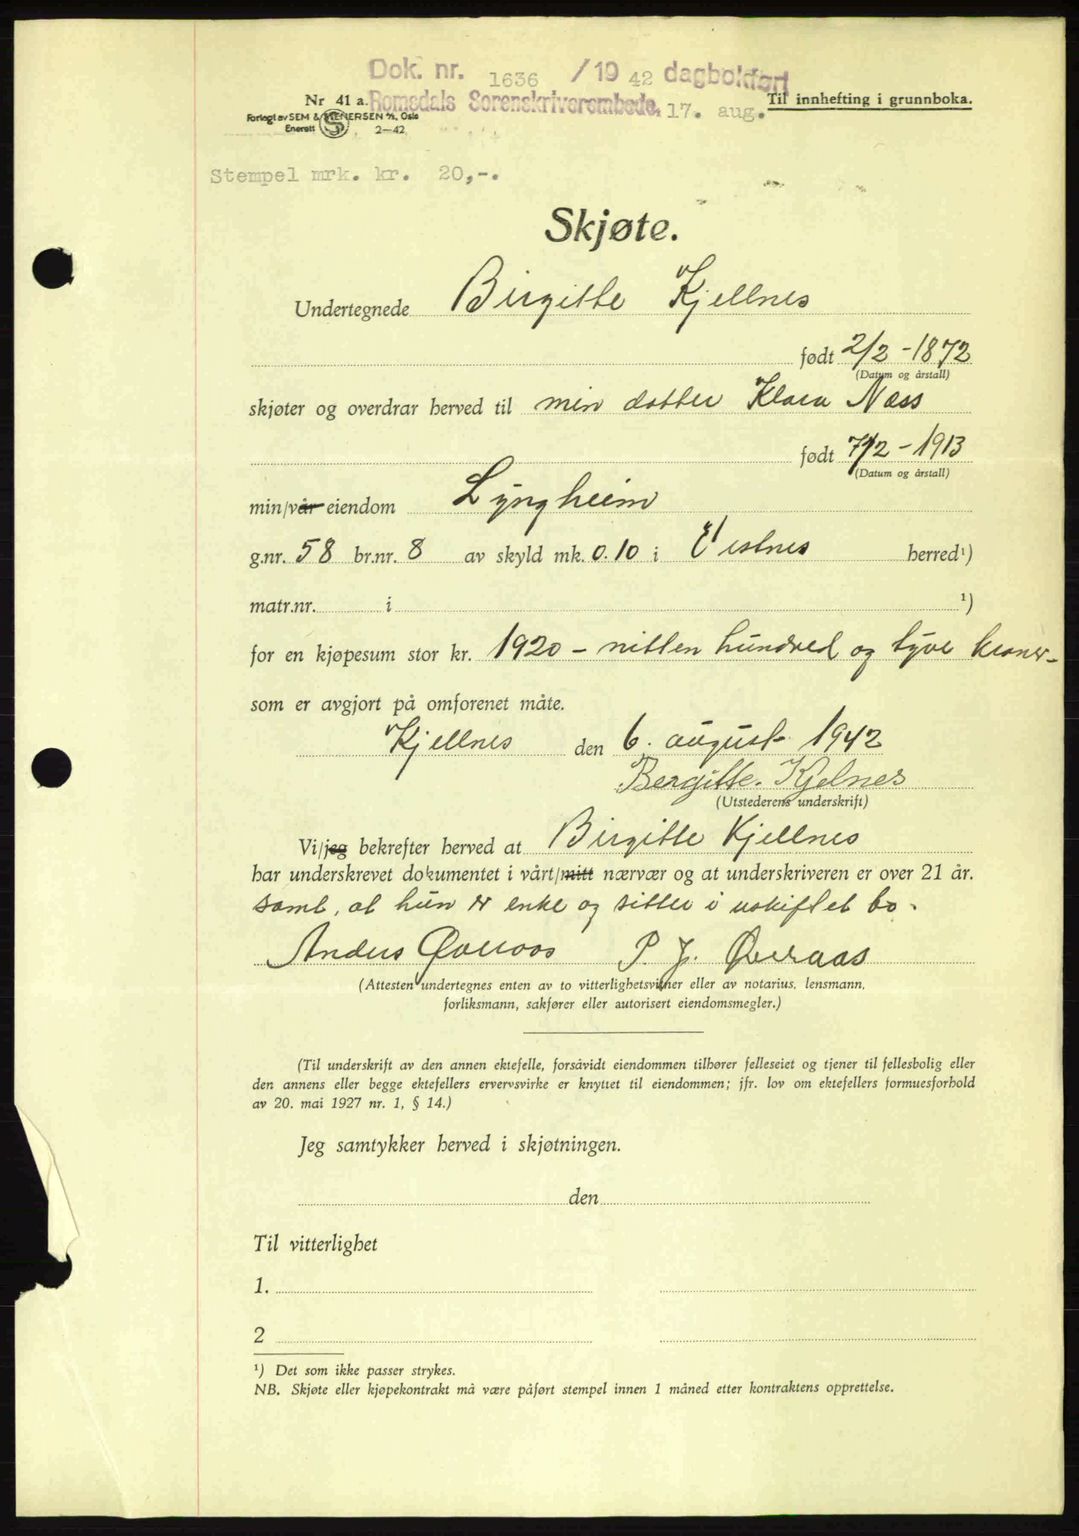 Dok. nr. 1636 /19 42 dagbokført
Nr 41 a. Romsdals Sorenskriverembede. 17. aug. Til innhefting i grunnboka.
Forlagt av SEM & STENERSEN A/S, Oslo
Enerett S 2—42
Stempel mrk. kr. 20,-.
Skjøte.
Undertegnede Birgitte Kjellnes
født 2/2 - 1872
(Datum og årstall)
skjøter og overdrar herved til min datter Klara Næss
født 7/2 - 1913
(Datum og årstall)
min/vår eiendom Lyngheim
g.nr. 58 br.nr. 8 av skyld mk. 0.10 i Vestnes herred¹)
matr.nr. i ¹)
for en kjøpesum stor kr. 1920 - nitten hundred og tyve kroner-
som er avgjort på omforenet måte.
Kjellnes den 6. august 1942
Bergitte Kjelnes
(Utstederens underskrift)
Vi/jeg bekrefter herved at Birgitte Kjellnes
har underskrevet dokumentet i vårt/mitt nærvær og at underskriveren er over 21 år.
samt, at hun er enke og sitter i uskiftet bo.
Anders Øveraas P. J. Øveraas
(Attesten undertegnes enten av to vitterlighetsvitner eller av notarius, lensmann,
forliksmann, sakfører eller autorisert eiendomsmegler.)
(Til underskrift av den annen ektefelle, forsåvidt eiendommen tilhører felleseiet og tjener til fellesbolig eller
den annens eller begge ektefellers ervervsvirke er knyttet til eiendommen; jfr. lov om ektefellers formuesforhold
av 20. mai 1927 nr. 1, § 14.)
Jeg samtykker herved i skjøtningen.
den
Til vitterlighet
1.
2
¹) Det som ikke passer strykes.
NB. Skjøte eller kjøpekontrakt må være påført stempel innen 1 måned etter kontraktens opprettelse.